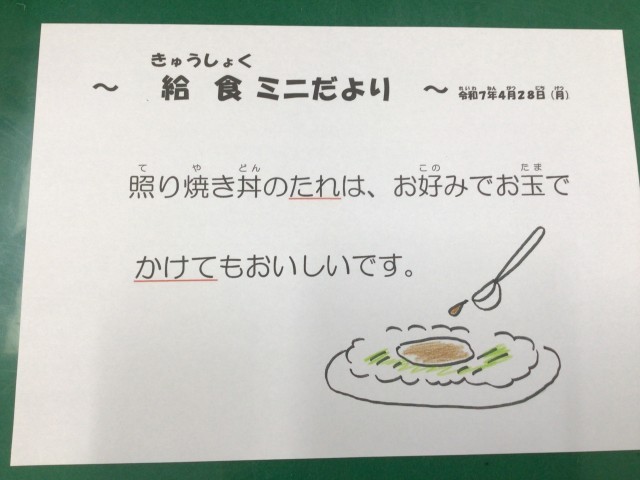 きゅうしょく
～ 給食ミニだより ～ 令和7年4月28日（月）
照り焼き丼のたれは、お好みでお玉で
かけてもおいしいです。